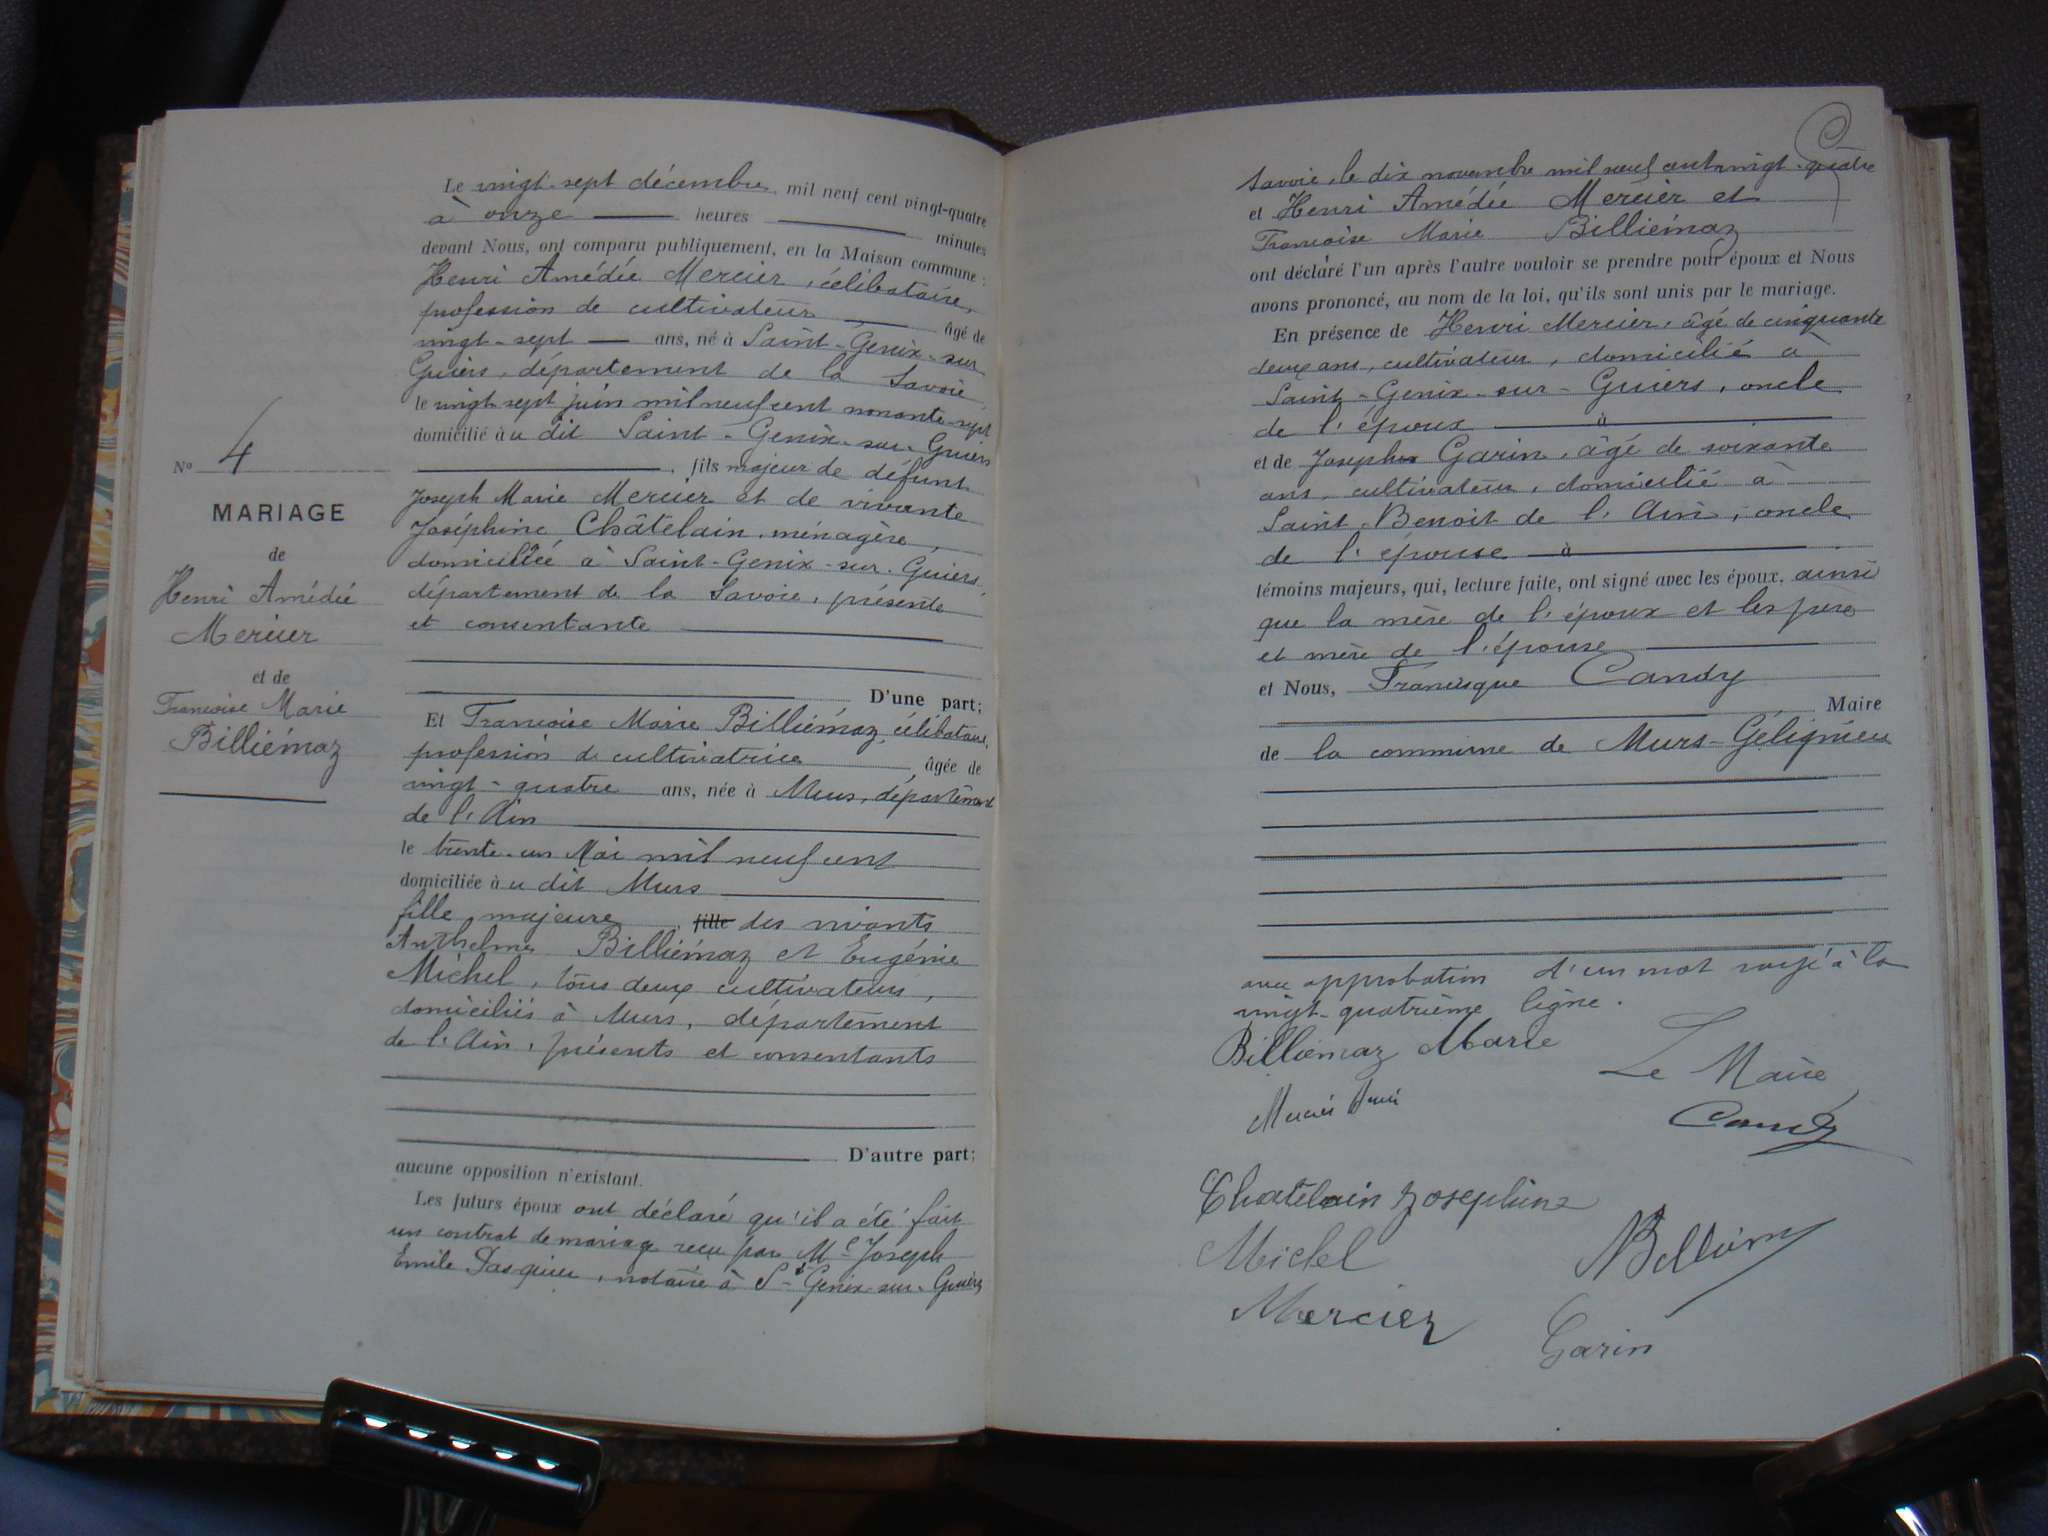 Le vingt-sept décembre mil neuf cent vingt-quatre
à onze heures minutes
devant Nous, ont comparu publiquement, en la Maison commune :
Henri Amédée Mercier, célibataire,
profession de cultivateur âgé de
vingt-sept ans, né à Saint-Genix-sur
Guiers, département de la Savoie,
le vingt-sept juin mil neuf cent nonante-sept
domicilié au dit Saint-Genix-sur-Guiers
, fils majeur de défunt
Joseph Marie Mercier et de vivante
Joséphine Châtelain, ménagère,
domiciliée à Saint-Genix-sur-Guiers,
département de la Savoie, présente
et consentante
D'une part;
Et Françoise Marie Billiémaz, célibataire,
profession de cultivatrice, âgée de
vingt-quatre ans, née à Murs, département
de l'Ain
le trente-un Mai mil neuf cent
domiciliée au dit Murs
fille majeure, fille des vivants
Anthelme Billiémaz et Eugénie
Michel, tous deux cultivateurs,
domiciliés à Murs, département
de l'Ain, présents et consentants
D'autre part;
aucune opposition n'existant.
Les futurs époux ont déclaré qu'il a été fait
un contrat de mariage reçu par Me Joseph
Emile Pasquier, notaire à St Genix-sur-Guiers
No 4
MARIAGE
de
Henri Amédée
Mercier
et de
Françoise Marie
Billiémaz
Savoie, le dix novembre mil neuf cent vingt-quatre
et Henri Amédée Mercier et
Françoise Marie Billiémaz
ont déclaré l'un après l'autre vouloir se prendre pour époux et Nous
avons prononcé, au nom de la loi, qu'ils sont unis par le mariage.
En présence de Henri Mercier, âgé de cinquante
deux ans, cultivateur, domicilié à
Saint-Genix-sur-Guiers, oncle
de l'époux à
et de Joseph Garin, âgé de soixante
ans, cultivateur, domicilié à
Saint-Benoit de l'Ain, oncle
de l'épouse à
témoins majeurs, qui, lecture faite, ont signé avec les époux, ainsi
que la mère de l'époux et les père
et mère de l'épouse
et Nous, Francisque Candy
Maire
de la commune de Murs-Gélignieu
avec approbation d'un mot rayé à la
vingt-quatrième ligne.
Billiémaz Marie
Le Maire
Mercier Henri
Candy
Chatelain Josephine
Michel
Mercier
Garin